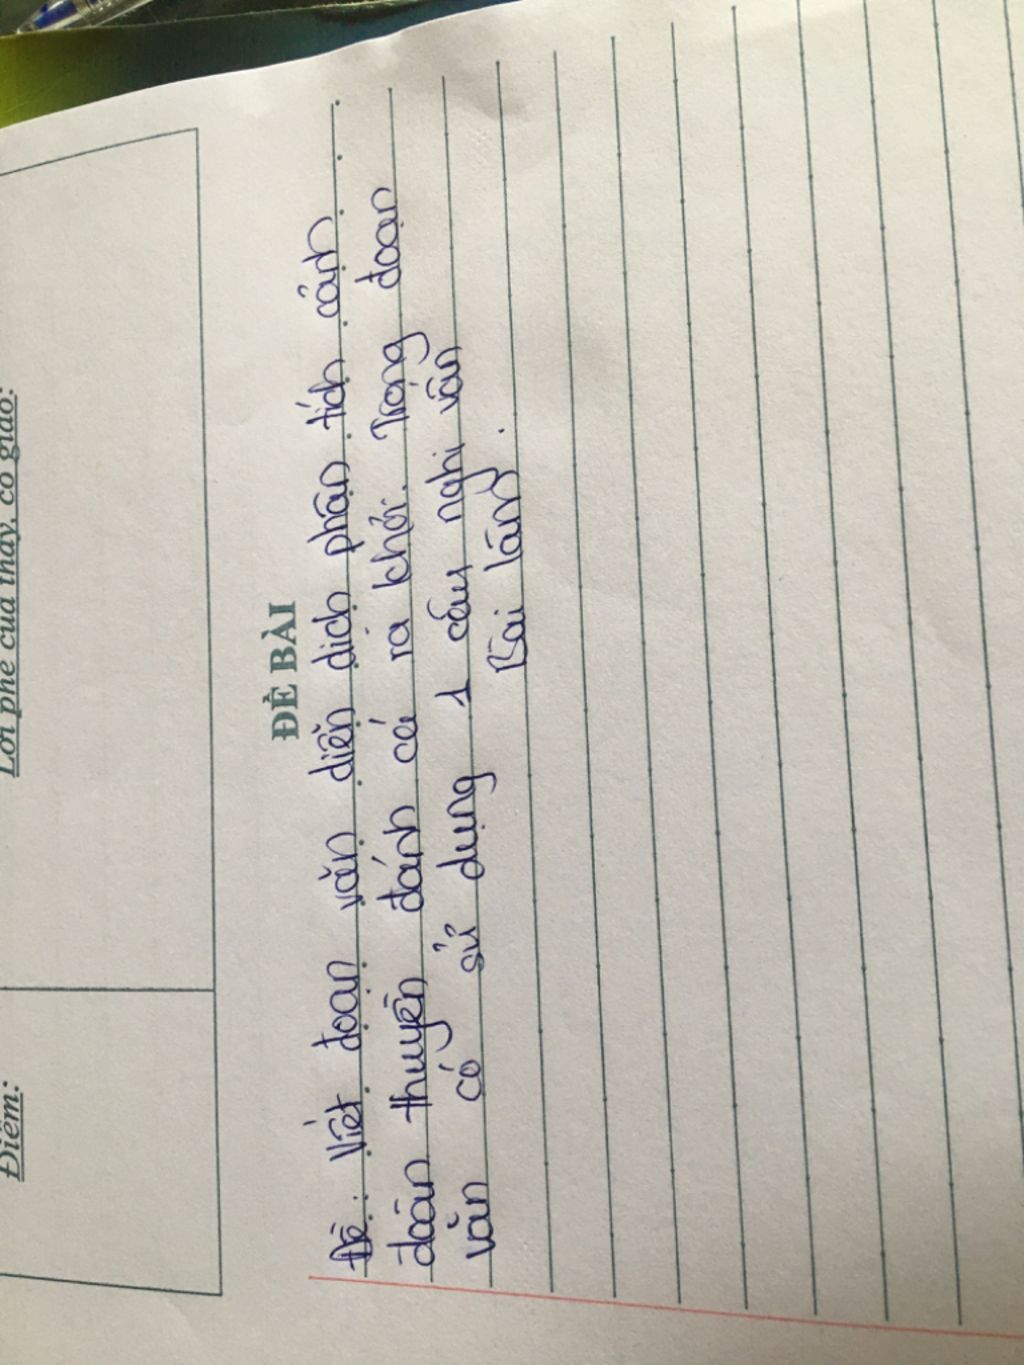 Điểm:
Lời phê của thầy, cô giáo:
ĐỀ BÀI
Đề: Viết đoạn văn diễn dịch phân tích cảnh
đoàn thuyền đánh cá ra khơi. Trong đoạn
văn có sử dụng 1 câu nghi vấn
Bài làm